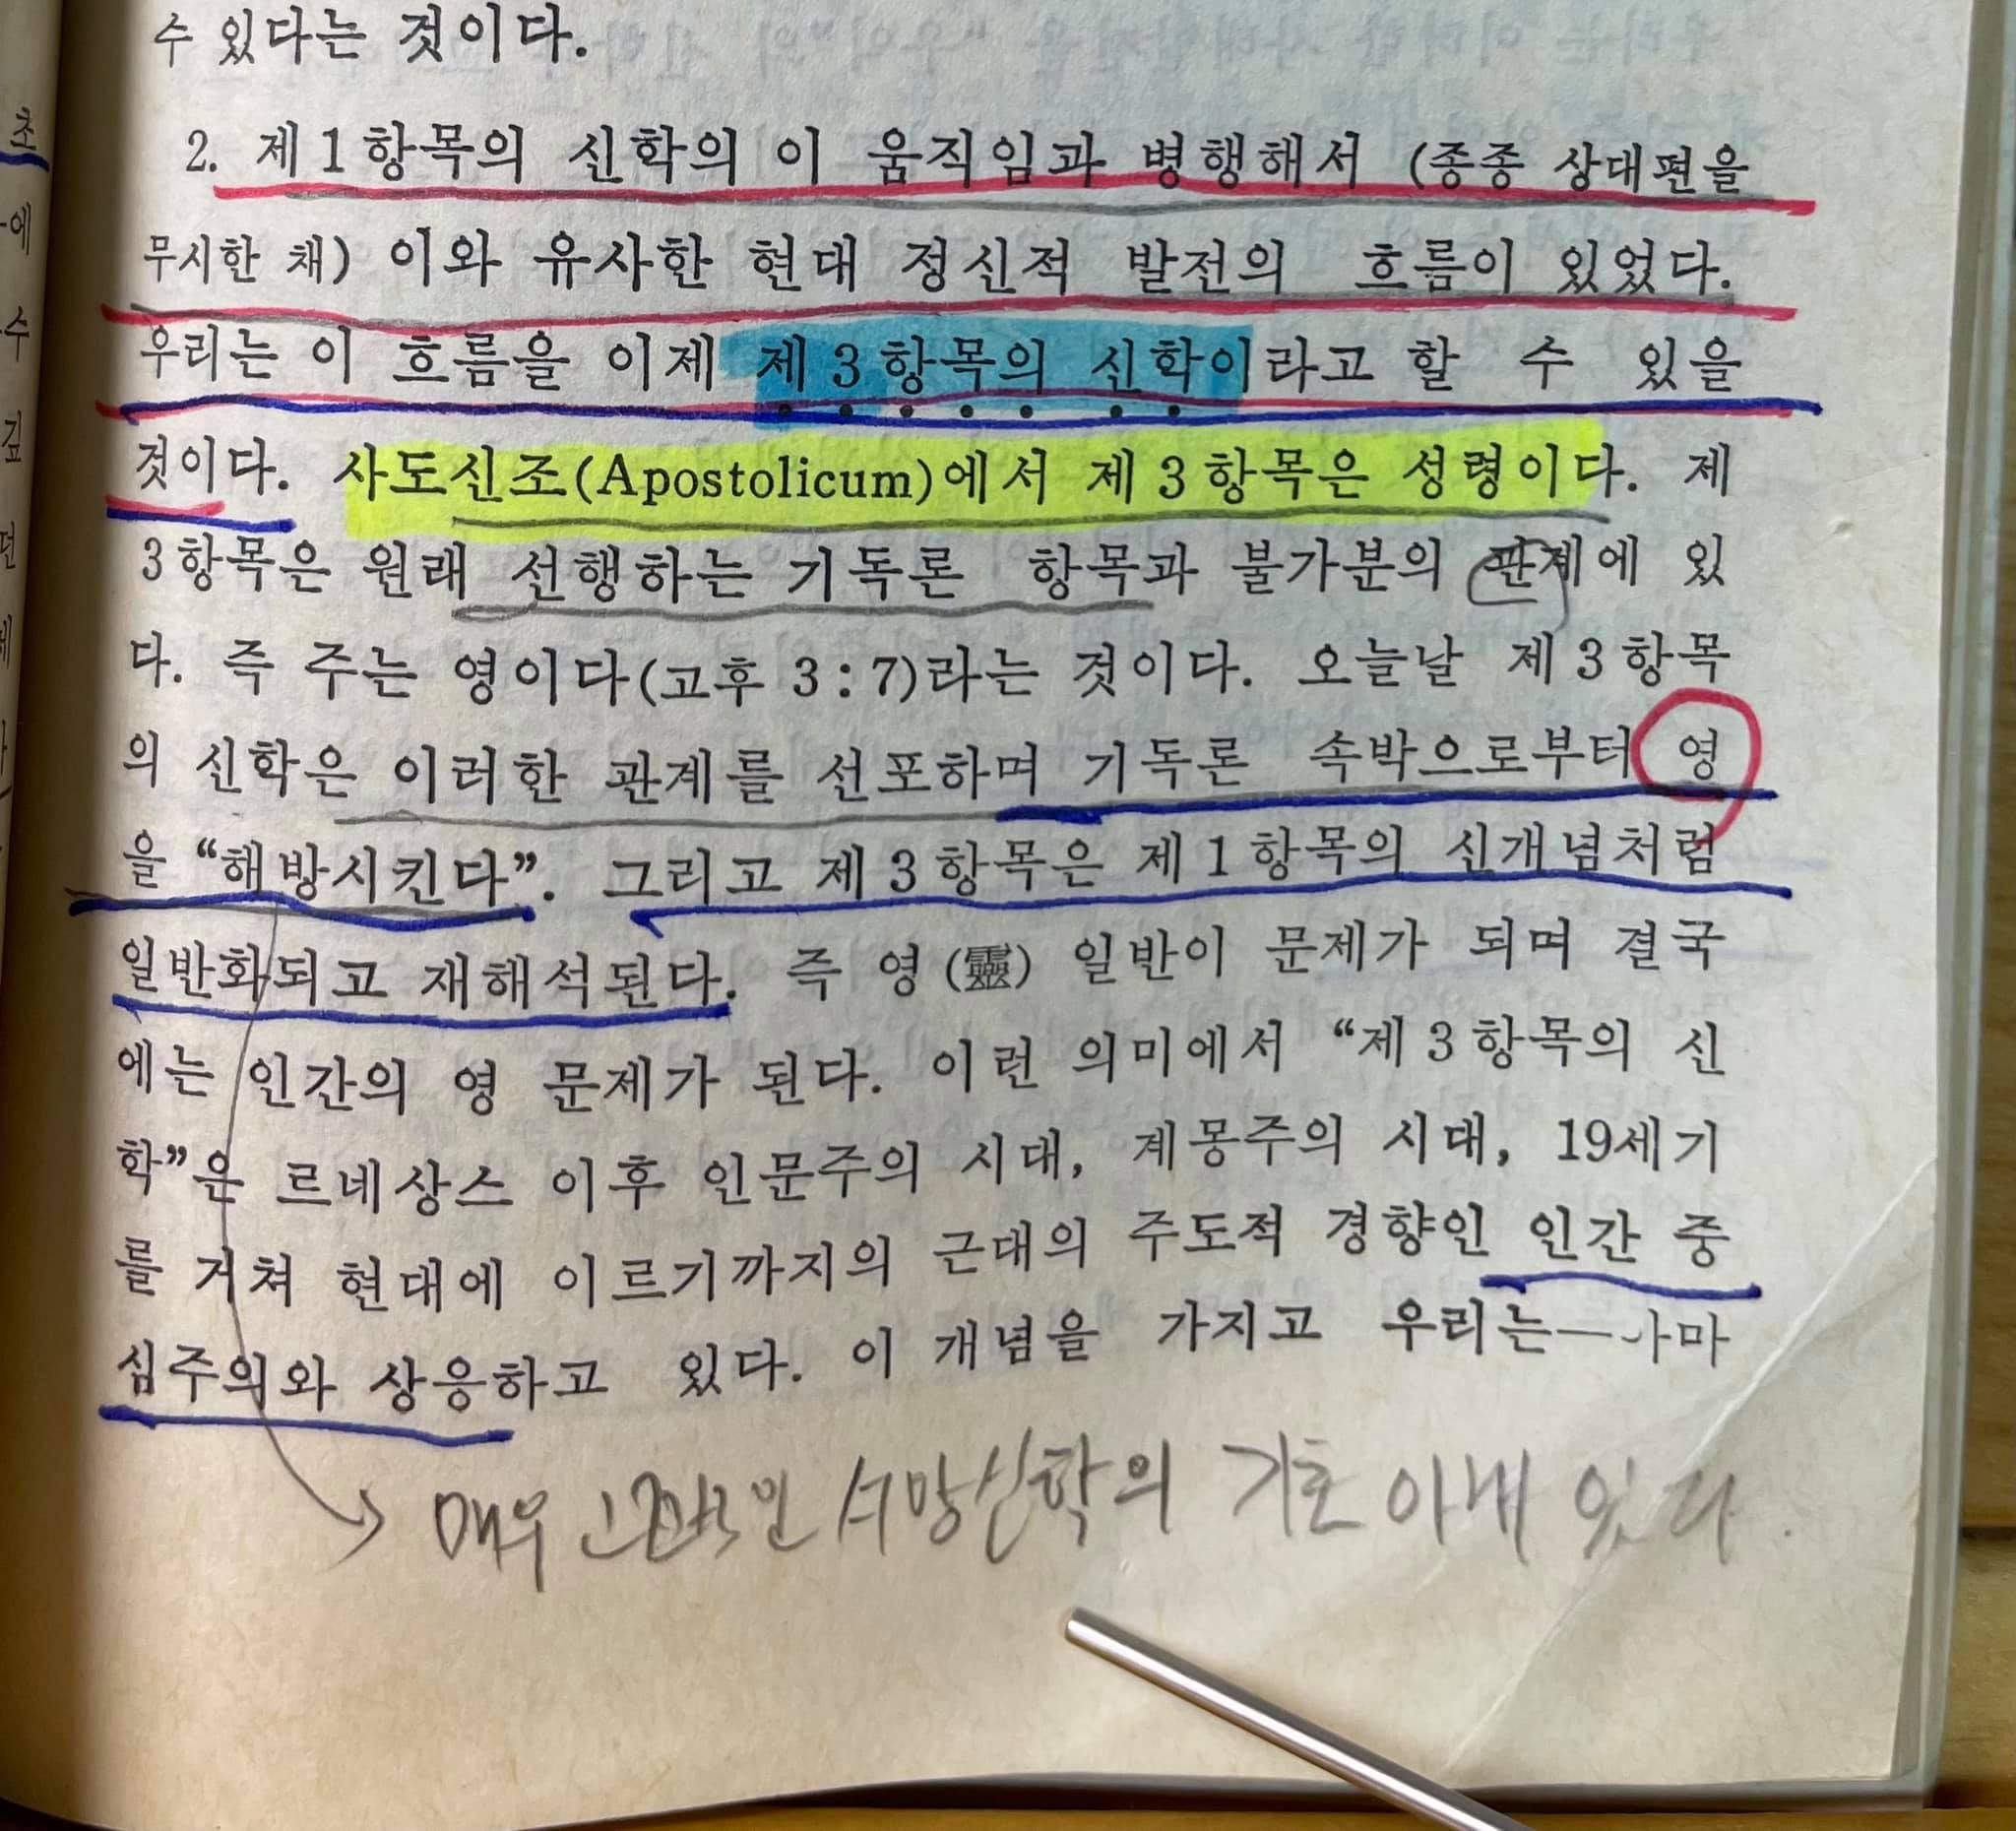 수 있다는 것이다.
2. 제 1 항목의 신학의 이 움직임과 병행해서 (종종 상대편을
무시한 채) 이와 유사한 현대 정신적 발전의 흐름이 있었다.
우리는 이 흐름을 이제 제 3 항목의 신학이라고 할 수 있을
것이다. 사도신조(Apostolicum)에서 제 3 항목은 성령이다. 제
3 항목은 원래 선행하는 기독론 항목과 불가분의 관계에 있
다. 즉 주는 영이다(고후 3 : 7)라는 것이다. 오늘날 제 3 항목
의 신학은 이러한 관계를 선포하며 기독론 속박으로부터 영
을 “해방시킨다”. 그리고 제 3 항목은 제 1 항목의 신개념처럼
일반화되고 재해석된다. 즉 영(靈) 일반이 문제가 되며 결국
에는 인간의 영 문제가 된다. 이런 의미에서 “제 3 항목의 신
학”은 르네상스 이후 인문주의 시대, 계몽주의 시대, 19세기
를 거쳐 현대에 이르기까지의 근대의 주도적 경향인 인간 중
심주의와 상응하고 있다. 이 개념을 가지고 우리는—아마
매우 신학의 기초 아래 있다.
초
에
수
깊